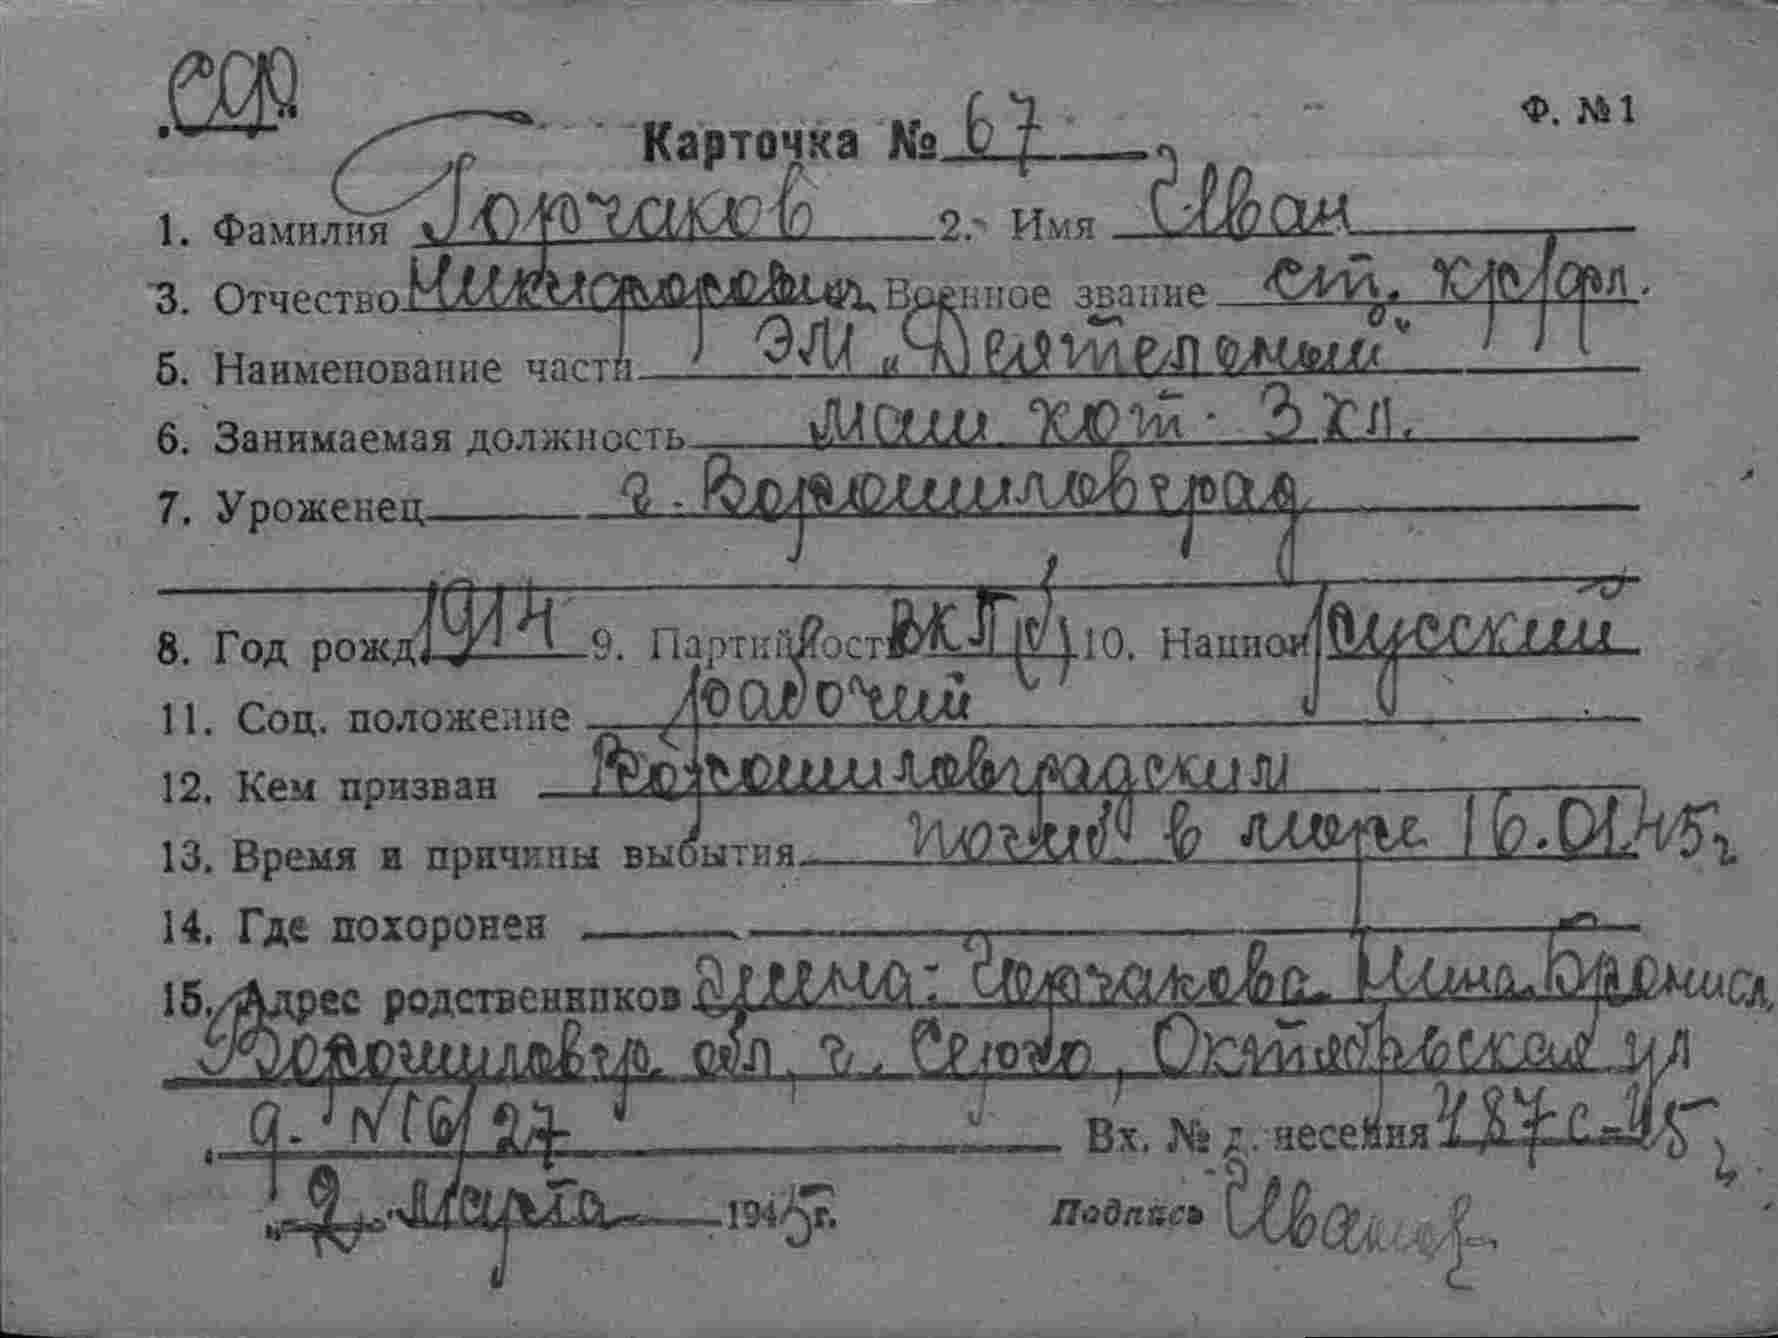 СФ.
Ф. №1
Карточка № 67
1. Фамилия Горчаков 2. Имя Иван
3. Отчество Никифорович Военное звание ст. кр/фл.
5. Наименование части ЭМ „Деятельный"
6. Занимаемая должность маш кот. 3 кл.
7. Уроженец г. Ворошиловград
8. Год рожд. 1914 9. Партийность ВКП(б) 10. Национ русский
11. Соц. положение рабочий
12. Кем призван Ворошиловградским
13. Время и причины выбытия погиб в море 16.01.45 г
14. Где похоронен
15. Адрес родственников жена: Горчакова Нина Бронисл.
Ворошиловгр. обл, г. Серго, Октябрьская ул
д. №16/27 Вх. № д. несения 487с-45 г
„2" марта 1945 г. Подпись